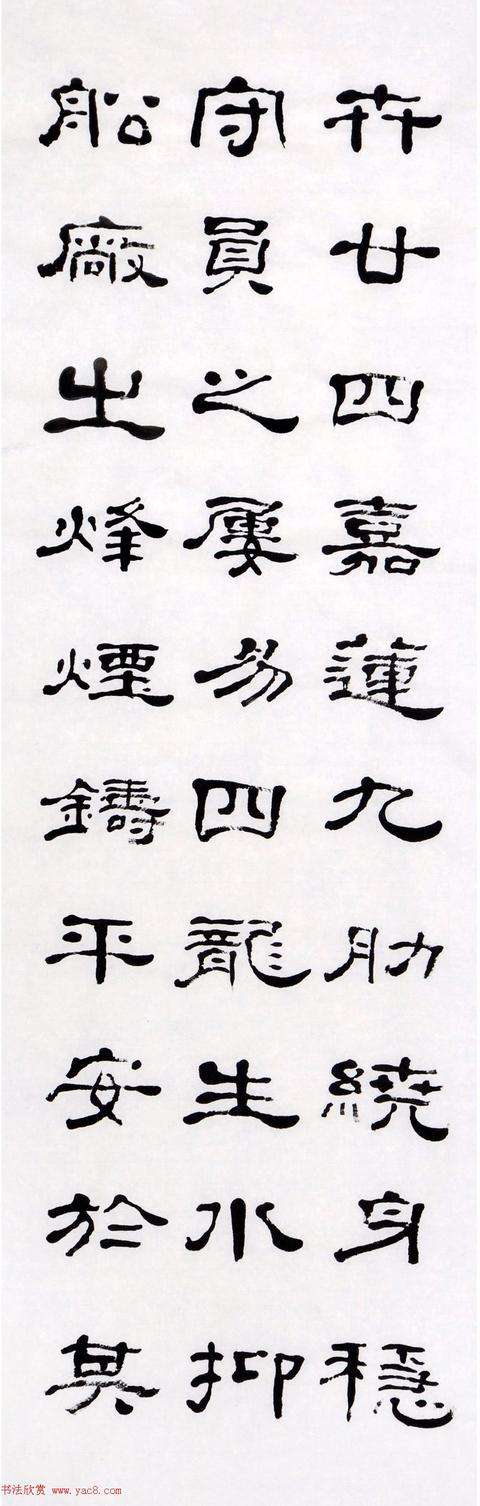 卉廿四嘉蓮九肋繞身穩
守員之屢易四龍生水抑
船廠出烽煙鑄平安於其
书法欣赏 www.yac8.com